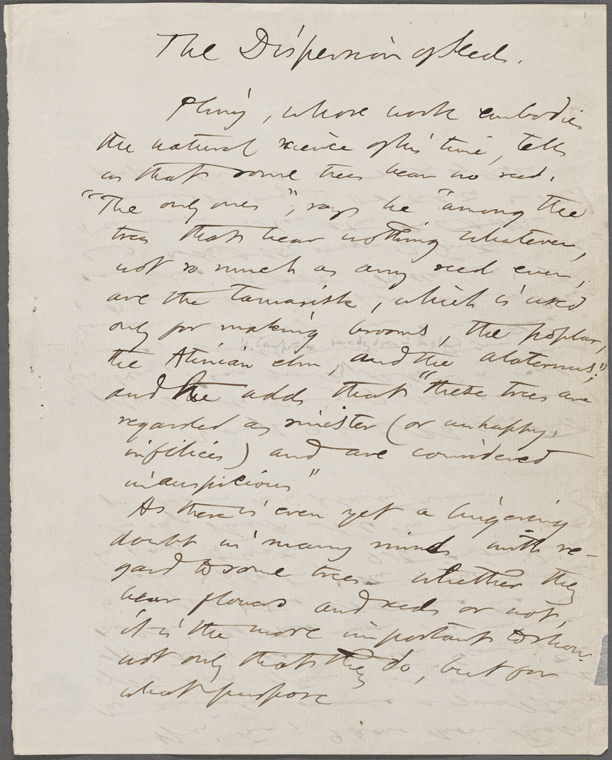 The Dispersion of Seeds.
Pliny, whose work embodies
the natural science of his time, tells
us that some trees bear no seed.
"The only ones", says he "among the
trees that bear nothing whatever,
not so much as any seed even,
are the tamarisk, which is used
only for making brooms, the poplar,
the Atinian elm, and the alaternus";
and he adds that "these trees are
regarded as sinister (or unhappy,
infelices) and are considered
inauspicious"
As there is even yet a lingering
doubt in many minds with re-
gard to some trees whether they
bear flowers and seeds or not,
it is the more important to show
not only that they do, but for
what purpose